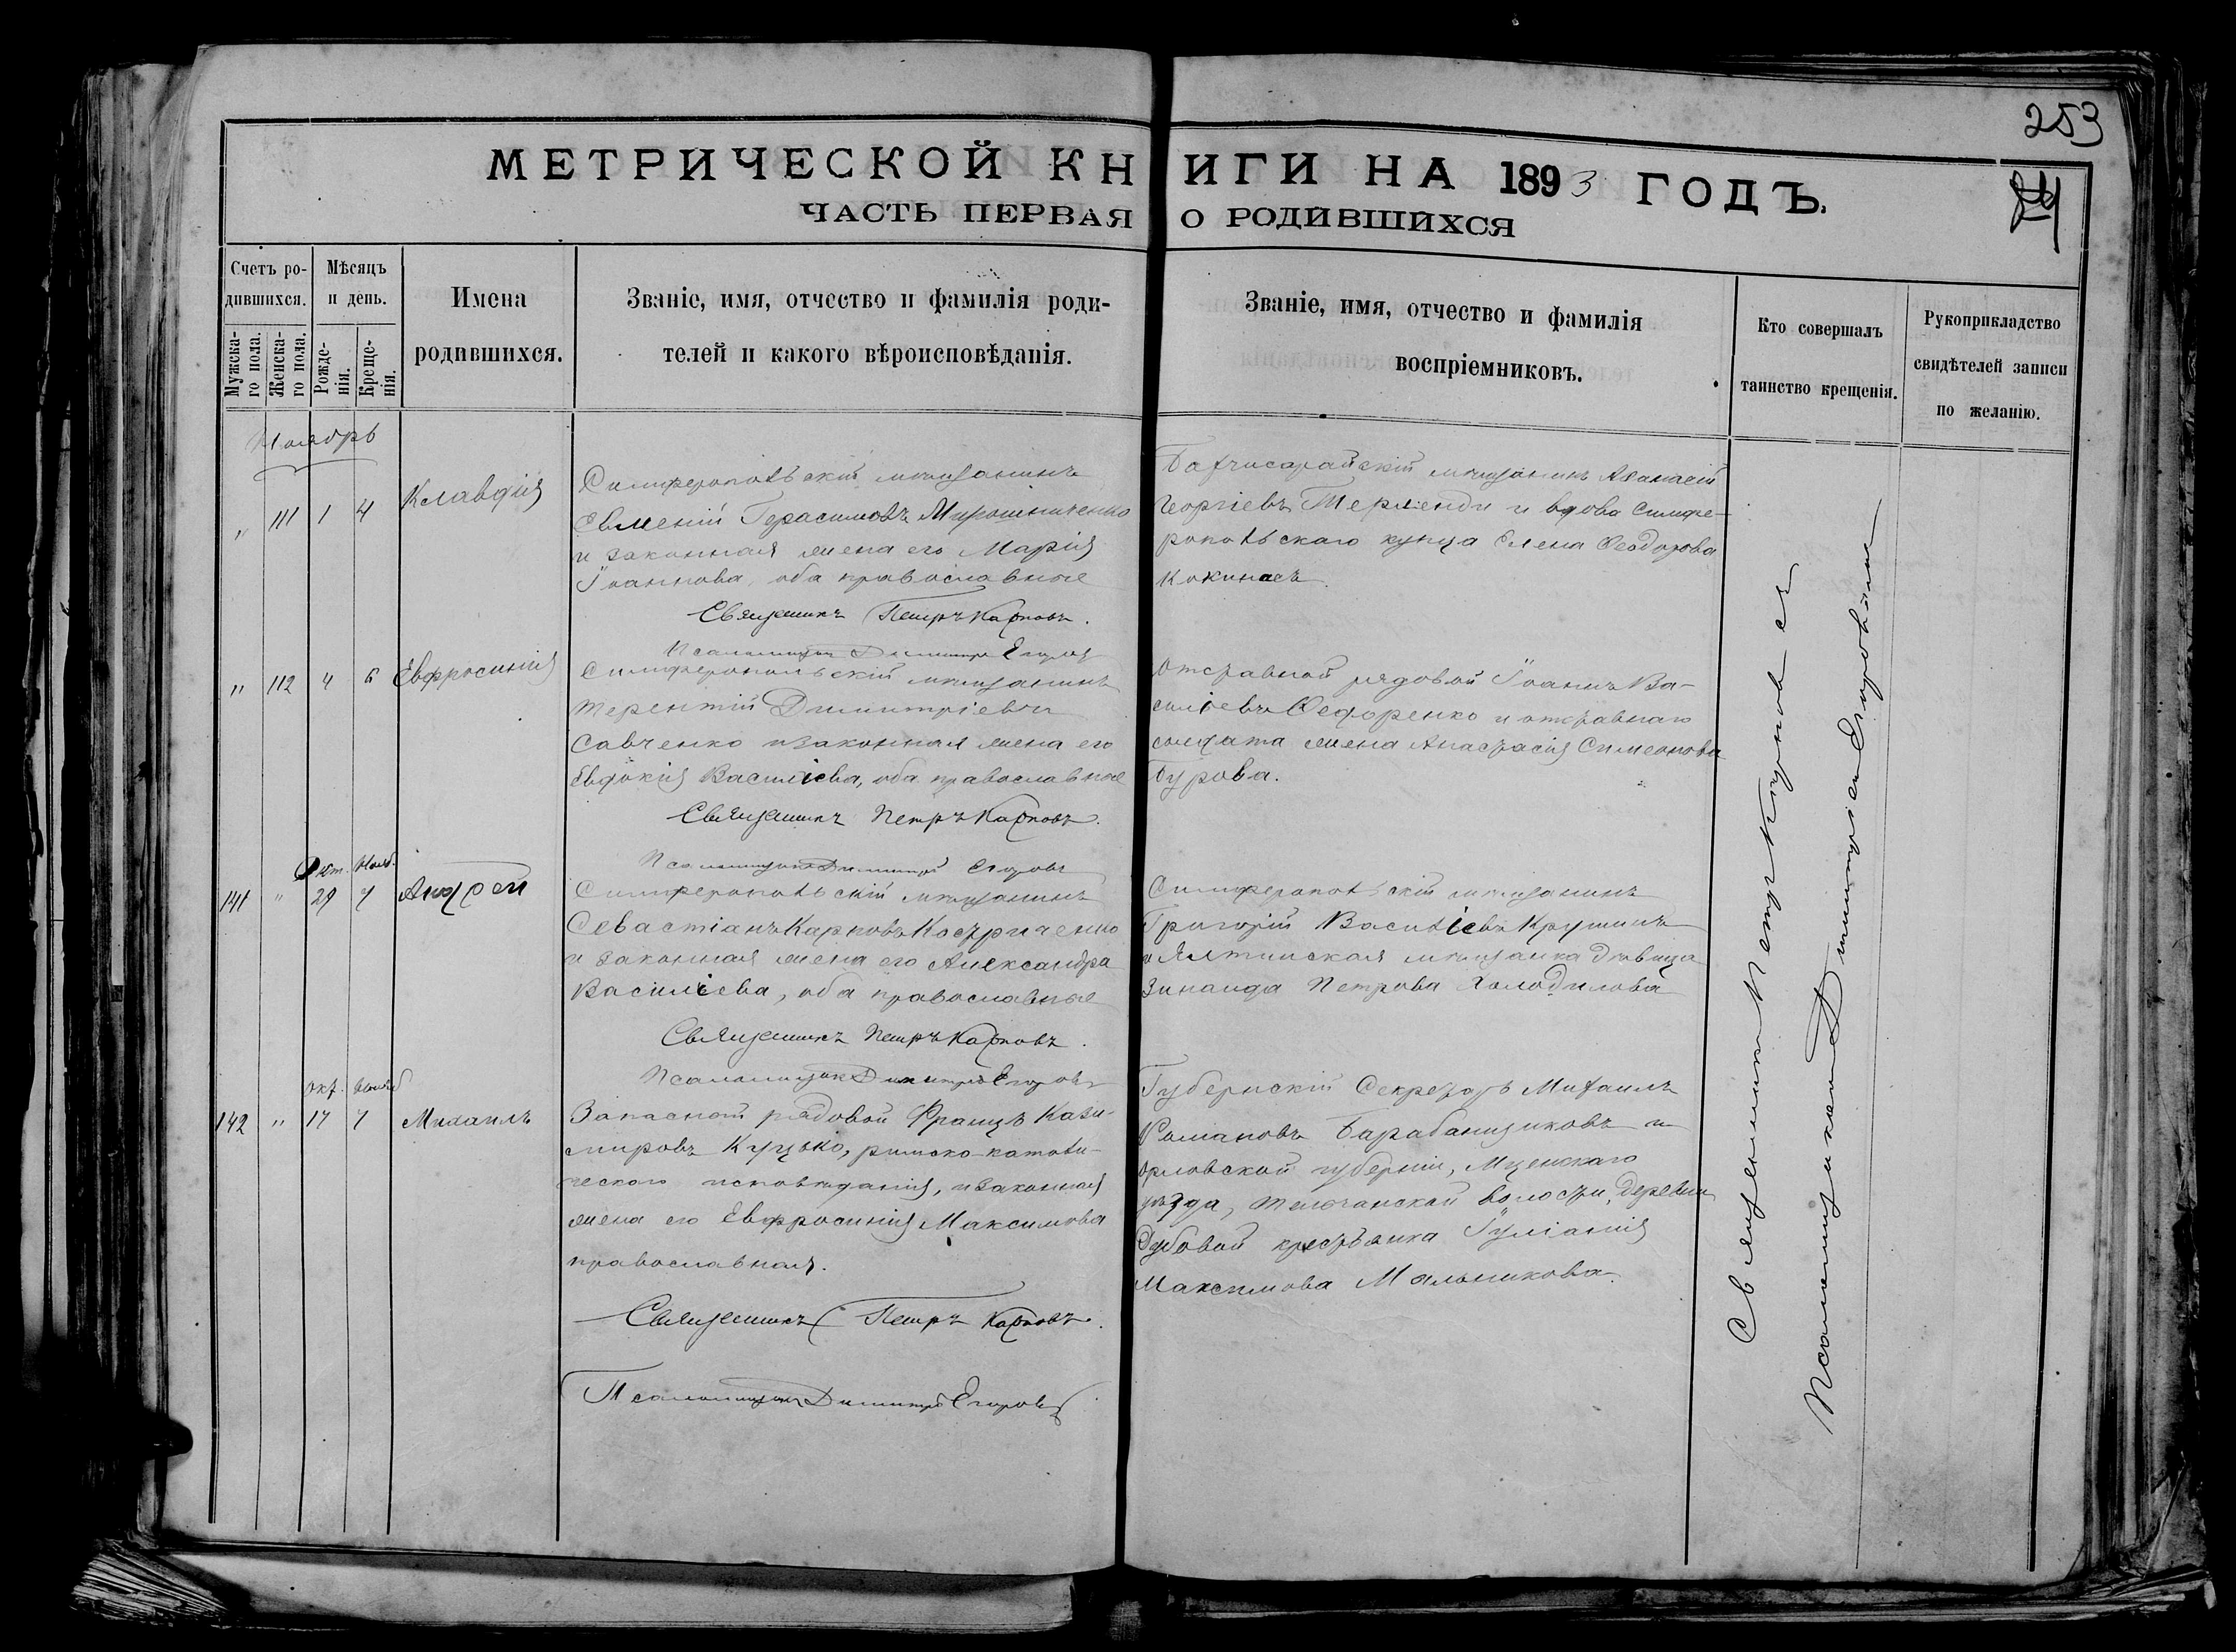 253
МЕТРИЧЕСКОЙ КНИГИ НА 1893 ГОДЪ.
ЧАСТЬ ПЕРВАЯ О РОДИВШИХСЯ
Счетъ ро-
дившихся.
Мужска-
го пола.
Женска-
го пола.
Мѣсяцъ
и день.
Рожде-
нія.
Креще-
нія.
Имена
родившихся.
Званіе, имя, отчество и фамилія роди-
телей и какого вѣроисповѣданія.
Званіе, имя, отчество и фамилія
воспріемниковъ.
Кто совершалъ
таинство крещенія.
Рукоприкладство
свидѣтелей записи
по желанію.
Ноябрь
" 111 1 4 Клавдія
Симферопольскій мѣщанинъ
Евменій Герасимовъ Мирошниченко
и законная жена его Марія
Іоаннова, оба православные
Священникъ Петръ Карповъ.
Псаломщикъ Димитрій Егоровъ
Бахчисарайскій мѣщанинъ Аѳанасій
Георгіевъ Терленди и вдова Симфе-
ропольскаго купца Елена Ѳеодорова
Кокинасъ.
" 112 4 6 Евфросинія
Симферопольскій мѣщанинъ
Терентій Димитріевъ
Савченко и законная жена его
Евдокія Василіева, оба православные
Священникъ Петръ Карповъ.
Псаломщикъ Димитрій Егоровъ
Отставной рядовой Іоаннъ Ва-
силіевъ Ѳедоренко и отставнаго
солдата жена Анастасія Симеонова
Бурова.
Окт. Нояб.
141 " 29 7 Андрей
Симферопольскій мѣщанинъ
Севастіанъ Карповъ Костриченко
и законная жена его Александра
Василіева, оба православные
Священникъ Петръ Карповъ.
Псаломщикъ Димитрій Егоровъ
Симферопольскій мѣщанинъ
Григорій Василіевъ Крушинъ
и Ялтинская мѣщанка дѣвица
Зинаида Петрова Холодилова
Окт. Нояб
142 " 17 7 Михаилъ
Запасной рядовой Францъ Кази-
мировъ Куцько, римско-католи-
ческаго исповѣданія, и законная
жена его Евфросинія Максимова
православная.
Священникъ Петръ Карповъ.
Псаломщикъ Димитрій Егоровъ
Губернскій Секретарь Михаилъ
Романовъ Барабанщиковъ и
Орловской губерніи, Мценскаго
уѣзда, волости, деревни
Дубовой крестьянка Іуліанія
Максимова Мальникова.
Священникъ Петръ Карповъ съ
Псаломщикомъ Димитріемъ Егоровымъ